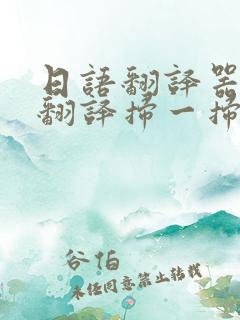 日語翻譯器
翻譯掃一掃
谷伯
未任同意禁止轉載